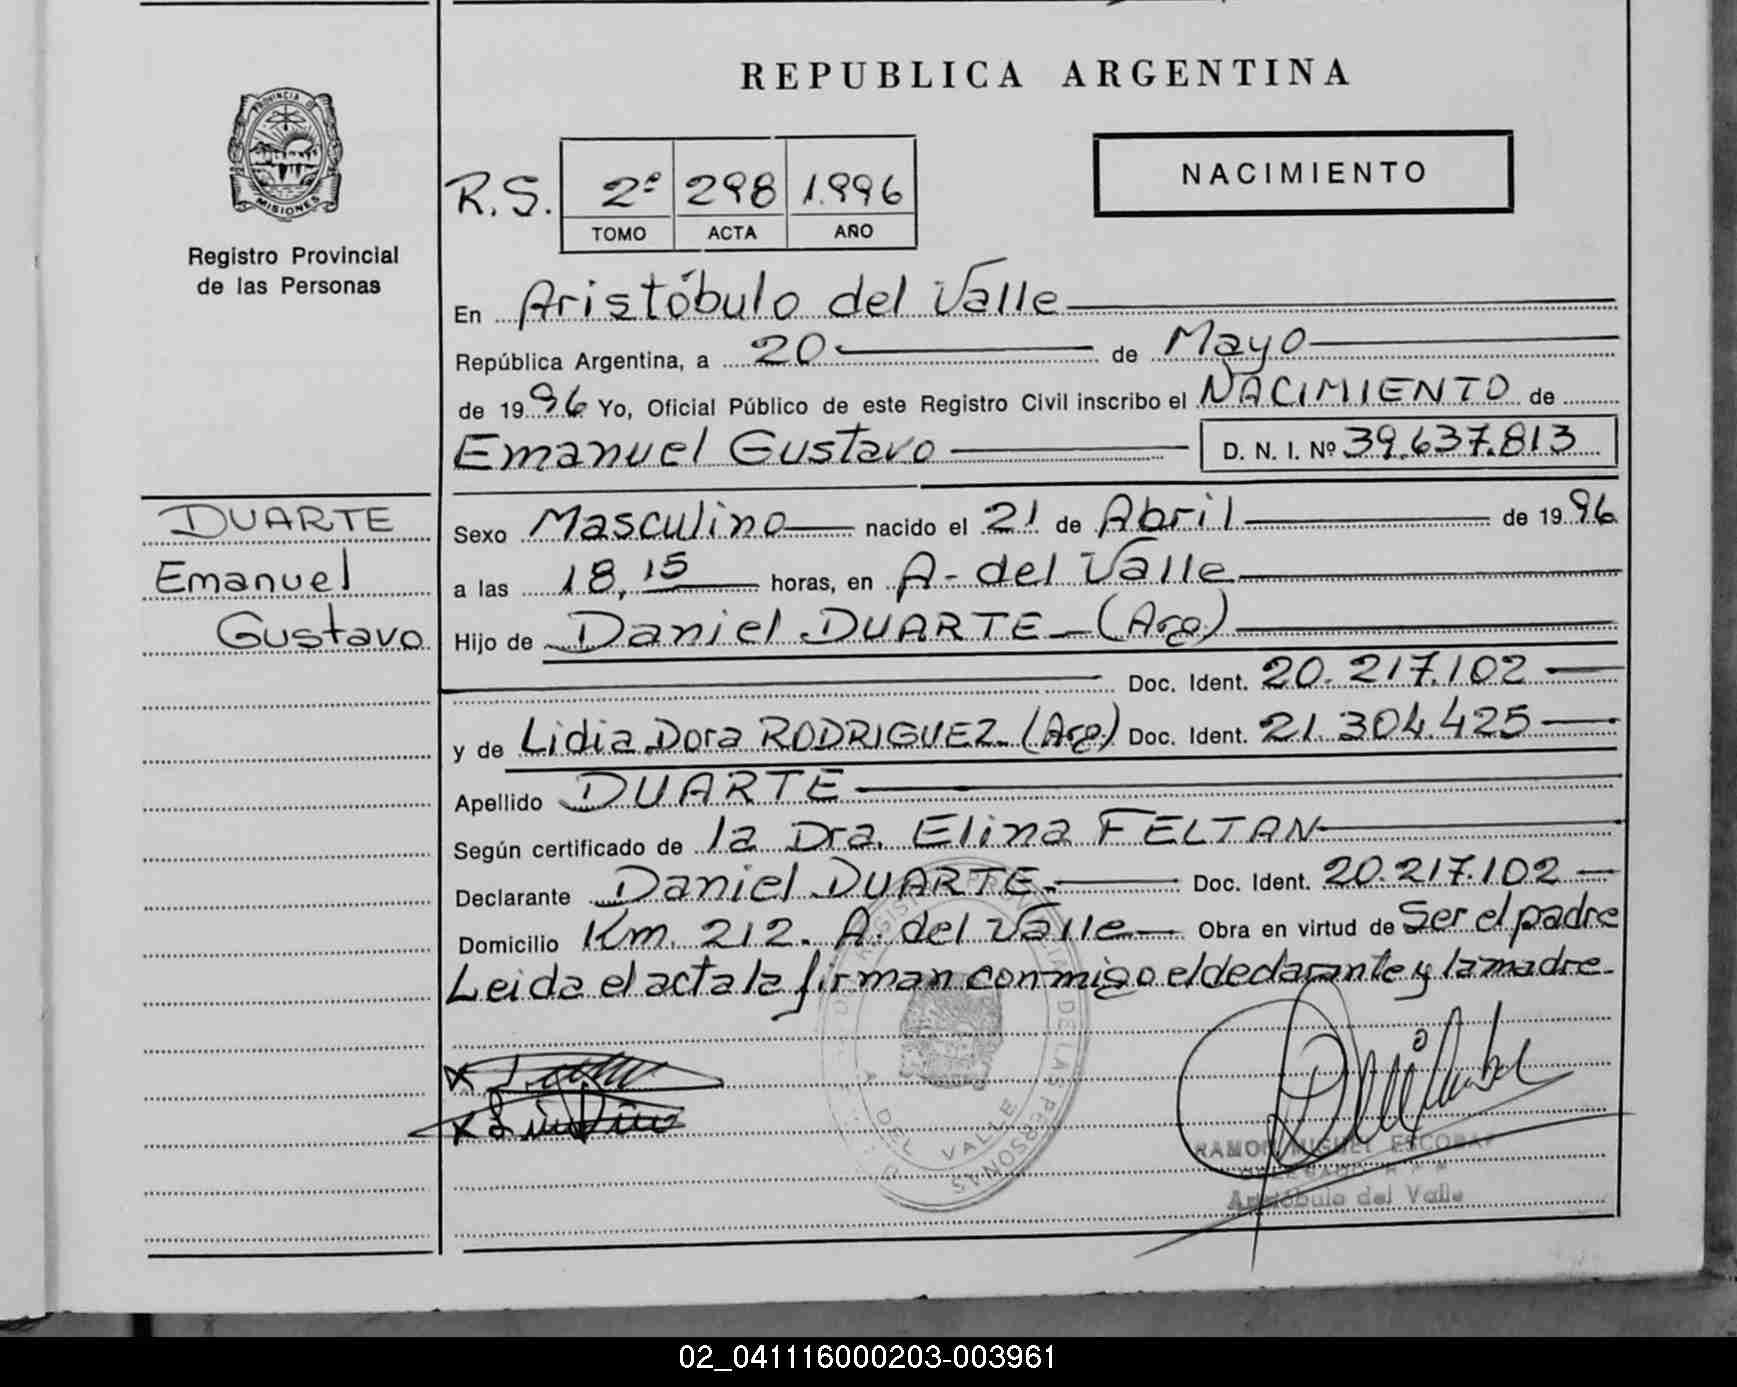 REPUBLICA ARGENTINA
PROVINCIA DE
MISIONES
Registro Provincial
de las Personas
NACIMIENTO
R.S. 2º 298 1.996
TOMO ACTA AÑO
En Aristóbulo del Valle
República Argentina, a 20 de Mayo
de 1996 Yo, Oficial Público de este Registro Civil inscribo el NACIMIENTO de
Emanuel Gustavo D. N. I. Nº 39.637.813
DUARTE
Emanuel
Gustavo
Sexo Masculino nacido el 21 de Abril de 1996
a las 18,15 horas, en A. del Valle
Hijo de Daniel DUARTE (Arg)
Doc. Ident. 20.217.102
y de Lidia Dora RODRIGUEZ (Arg) Doc. Ident. 21.304.425
Apellido DUARTE
Según certificado de la Dra. Elina FELTAN
Declarante Daniel DUARTE Doc. Ident. 20.217.102
Domicilio Km. 212. A. del Valle Obra en virtud de Ser el padre
Leida el acta la firman conmigo el declarante y la madre.
DE LAS PERSONAS
A. DEL VALLE
RAMON MIGUEL ESCOBAR
Aristóbulo del Valle
02_041116000203-003961